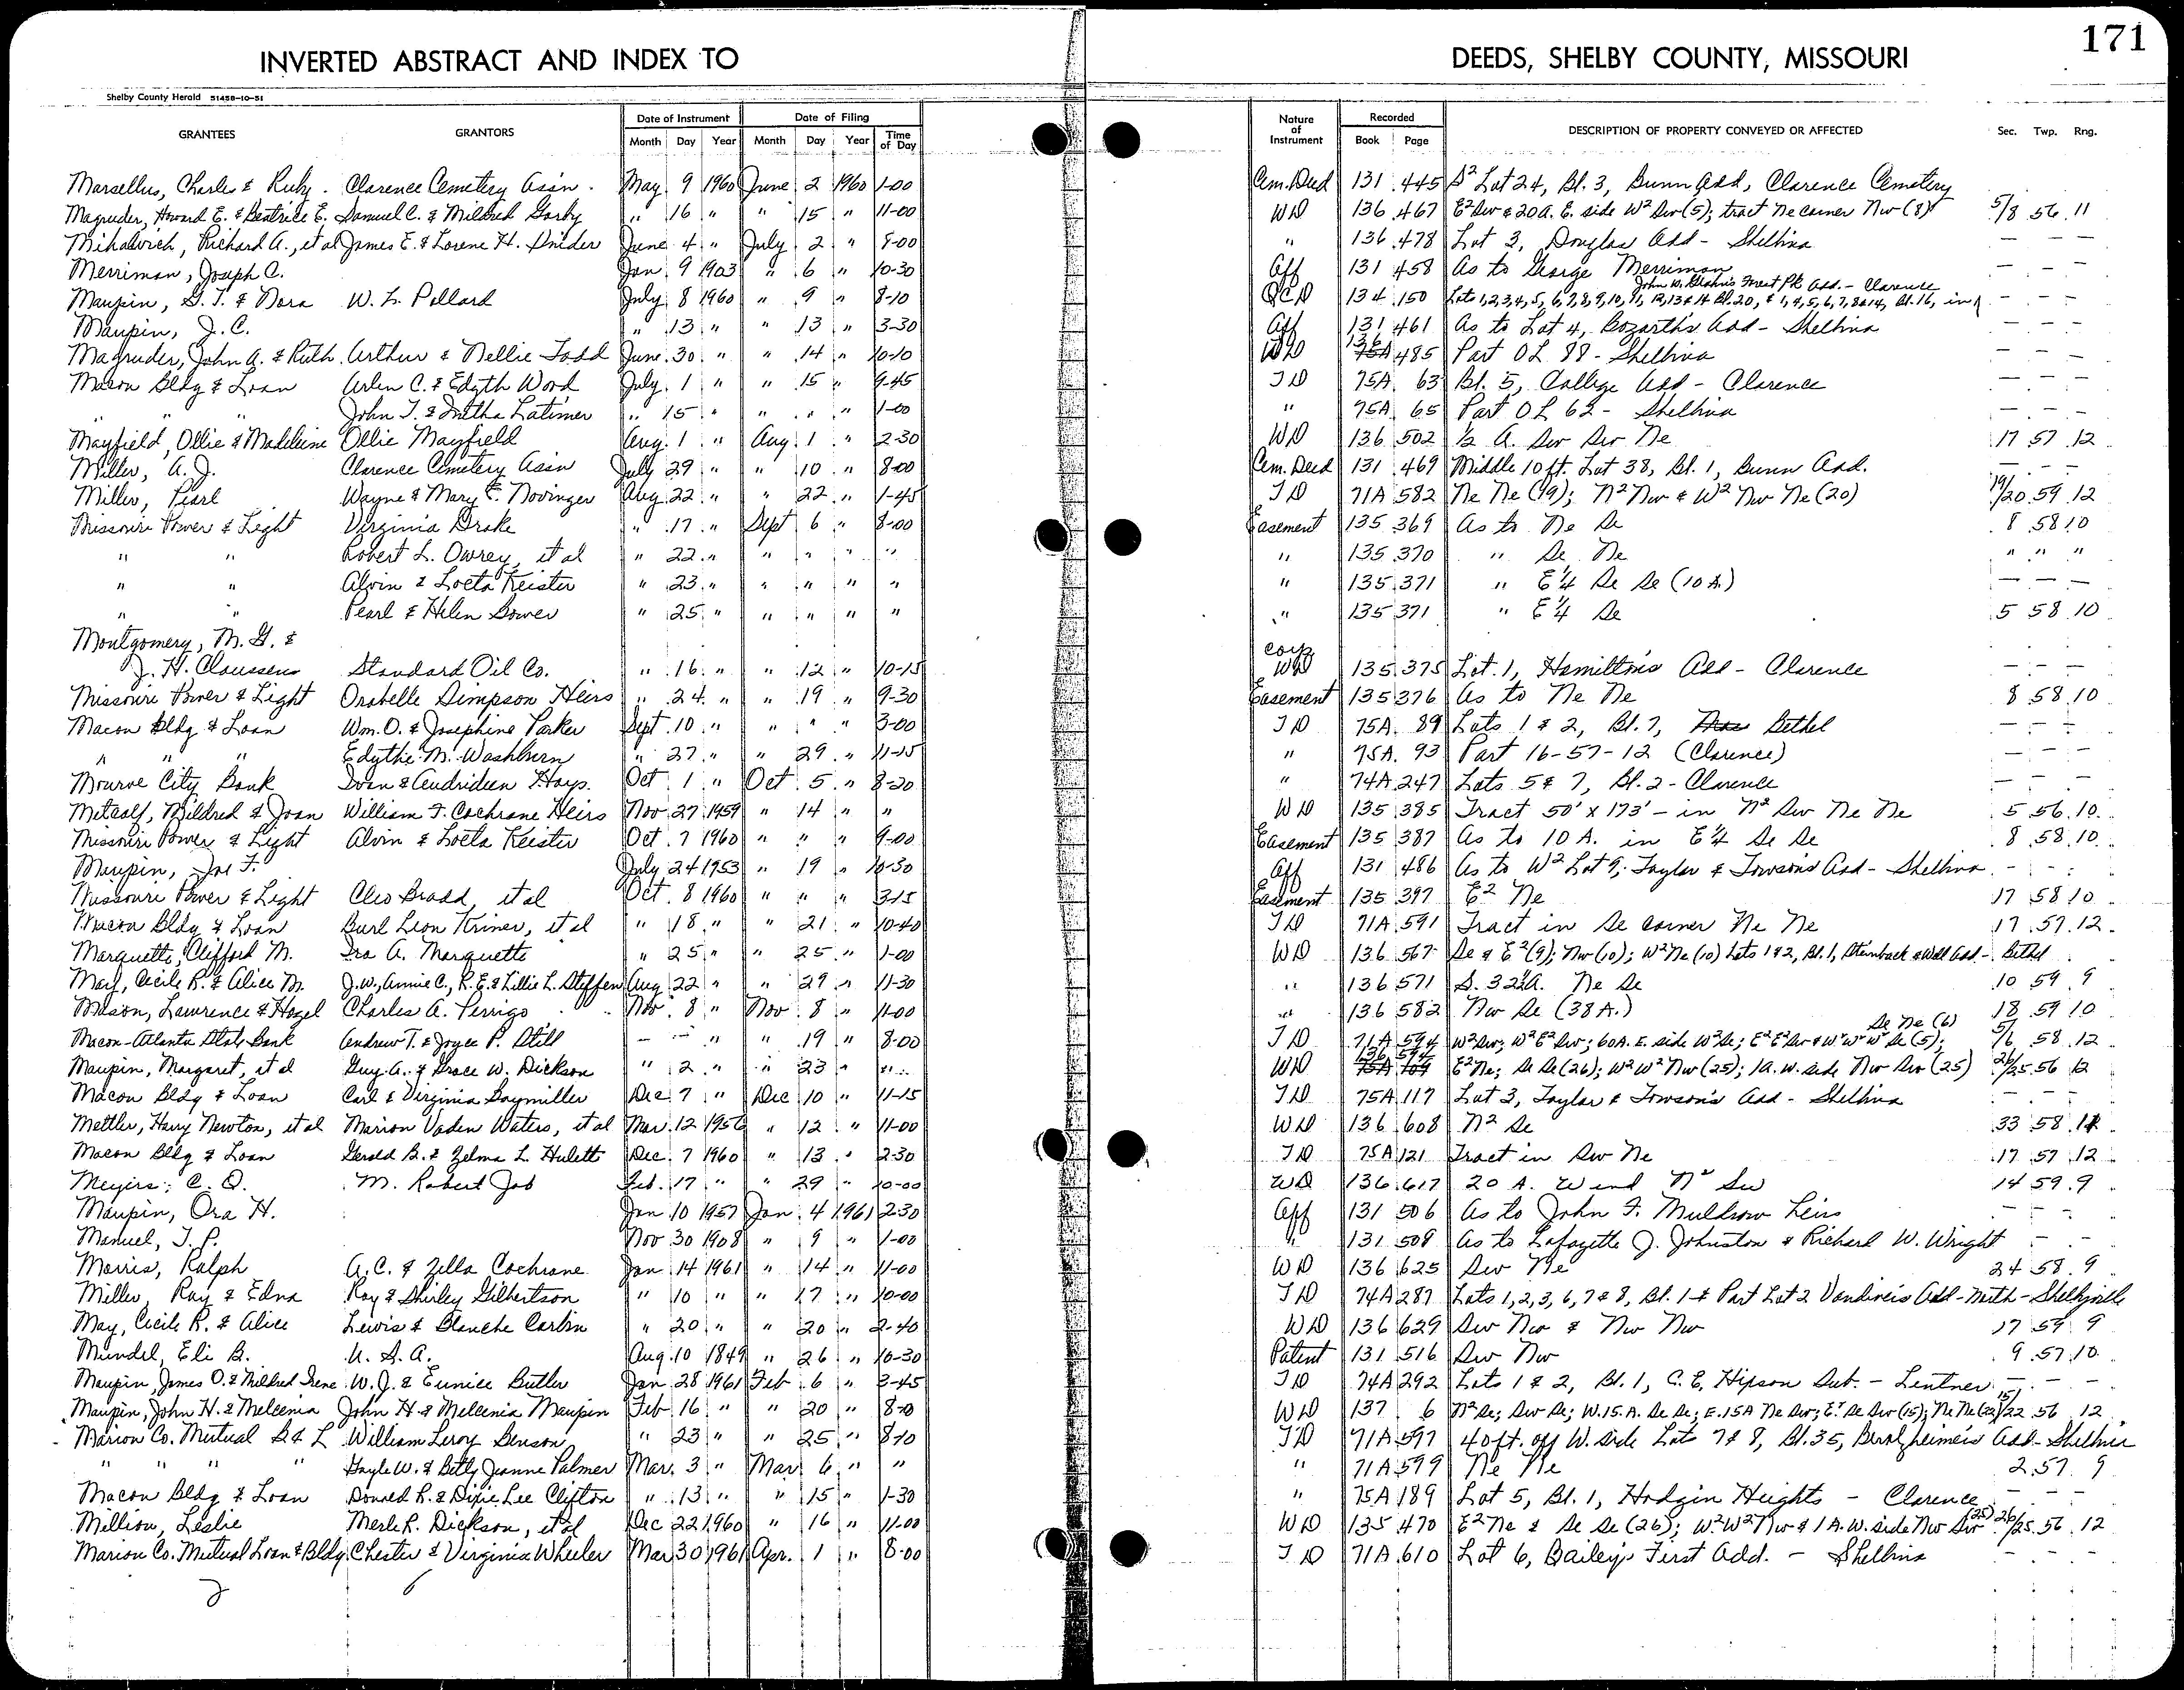 171
INVERTED ABSTRACT AND INDEX TO DEEDS, SHELBY COUNTY, MISSOURI
Shelby County Herald 51458-10-51
GRANTEES GRANTORS Date of Instrument Date of Filing Nature of Instrument Recorded DESCRIPTION OF PROPERTY CONVEYED OR AFFECTED Sec. Twp. Rng.
Month Day Year Month Day Year Time of Day Book Page
Marsellus, Charles & Ruby. Clarence Cemetery Ass'n. May 9 1960 June 2 1960 1-00 Cem. Deed 131 445 S² Lot 24, Bl. 3, Bunn Add, Clarence Cemetery
Magruder, Howard E. & Beatrice E. Samuel C. & Mildred Gorby " 16 " " 15 " 11-00 WD 136 467 E² Sw & 20A. E. side W² Sw (5); tract Ne corner Nw (8) 5/8 56 11
Mihalovich, Richard A., et al James E. & Lorene H. Snider June 4 " July 2 " 9-00 " 136 478 Lot 3, Douglas Add - Shelbina — — —
Merriman, Joseph C. Jan. 9 1903 " 6 " 10-30 Aff 131 458 As to George Merriman — — —
Maupin, G. T. & Nora W. L. Pollard July 8 1960 " 9 " 8-10 QCD 134 150 Lots 1,2,3,4,5,6,7,8,9,10,11,12,13 & 14 Bl. 20, & 1,4,5,6,7,8 & 14, Bl. 16, in John W. Grahn's Forest Pk Add. - Clarence — — —
Maupin, J. C. " 13 " " 13 " 3-30 Aff 131 461 As to Lot 4, Bozarth's Add - Shelbina — — —
Magruder, John A. & Ruth. Arthur & Nellie Todd June 30 " " 14 " 10-10 WD 136 485 Part OL 88 - Shelbina — — —
Macon Bldg & Loan Arlen C. & Edyth Wood July 1 " " 15 " 9-45 TD 75A 63 Bl. 5, College Add - Clarence — — —
" " " John T. & Tretha Latimer " 15 " " " " 1-00 " 75A 65 Part OL 62 - Shelbina — — —
Mayfield, Ollie & Madeleine Ollie Mayfield Aug. 1 " Aug. 1 " 2-30 WD 136 502 ½ A. Sw Sw Ne 17 57 12
Miller, A. J. Clarence Cemetery Ass'n July 29 " " 10 " 8-00 Cem. Deed 131 469 Middle 10 ft. Lot 38, Bl. 1, Bunn Add. — — —
Miller, Pearl Wayne & Mary E. Novinger Aug 22 " " 22 " 1-45 TD 71A 582 Ne Ne (19); N² Nw & W² Nw Ne (20) 19/20 59 12
Missouri Power & Light Virginia Drake " 17 " Sept 6 " 8-00 Easement 135 369 As to Ne Se 8 58 10
" " Robert L. Owrey, et al " 22 " " " " " " 135 370 " Se Ne " " "
" " Alvin & Loeta Keister " 23 " " " " " " 135 371 " E¼ Se Se (10 A.) — — —
" " Pearl & Helen Bower " 25 " " " " " " 135 371 " E¼ Se 5 58 10
Montgomery, M. G. &
J. H. Claussens Standard Oil Co. " 16 " " 12 " 10-15 Corp WD 135 375 Lot. 1, Hamilton's Add - Clarence — — —
Missouri Power & Light Orabelle Simpson Heirs " 24 " " 19 " 9-30 Easement 135 376 As to Ne Ne 8 58 10
Macon Bldg & Loan Wm. O. & Josephine Parker Sept. 10 " " " " 3-00 TD 75A 89 Lots 1 & 2, Bl. 7, Bethel — — —
" " " Edythe M. Washburn " 27 " " 29 " 11-15 " 75A 93 Part 16-57-12 (Clarence) — — —
Monroe City Bank Ivan & Hays. Oct 1 " Oct. 5 " 8-30 " 74A 247 Lots 5 & 7, Bl. 2 - Clarence — — —
Metcalf, Mildred & Joan William T. Cochrane Heirs Nov 27 1959 " 14 " " WD 135 385 Tract 50' x 173' - in N² Sw Ne Ne 5 56 10
Missouri Power & Light Alvin & Loeta Keister Oct. 7 1960 " " " 9-00 Easement 135 387 As to 10 A. in E¼ Se Se 8 58 10
Maupin, Joe F. July 24 1953 " 19 " 10-30 Aff 131 486 As to W² Lot 9, Taylor & Towson's Add - Shelbina — — —
Missouri Power & Light Cleo Gradd, et al Oct. 8 1960 " " " 3-15 Easement 135 397 E² Ne 17 58 10
Macon Bldg & Loan Burl Leon Kriner, et al " 18 " " 21 " 10-40 TD 71A 591 Tract in Se corner Ne Ne 17 57 12
Marquette, Clifford M. Ira A. Marquette " 25 " " 25 " 1-00 WD 136 567 Se & E² (9); Nw (10); W² Ne (10) Lots 1 & 2, Bl. 1, Steinback & Will Add - Bethel
May, Cecile R. & Alice M. J. W., Annie C., R. E. & Lillie L. Steffen Aug 22 " " 29 " 11-30 " 136 571 S. 32½A. Ne Se 10 59 9
Mason, Lawrence & Hazel Charles A. Perrigo Nov. 8 " Nov. 8 " 11-00 " 136 582 Nw Se (38 A.) 18 59 10
Macon-Atlanta State Bank Andrew T. & Joyce P. Still — — " " 19 " 8-00 TD 71A 594 W² Sw; W² E² Sw; 60A. E. side W² Se; E² E² Sw & W² W² W² Se (5); Se Ne (6) 5/6 58 12
Maupin, Margaret, et al Guy A. & Grace W. Dickson " 2 " " 23 " " WD 136 594 E² Ne; Se Se (26); W² W² Nw (25); 1A. W. side Nw Sw (25) 26/25 56 12
Macon Bldg & Loan Carl & Virginia Baymiller Dec 7 " Dec 10 " 11-15 TD 75A 117 Lot 3, Taylor & Towson's Add - Shelbina — — —
Mettler, Harry Newton, et al Marion Vaden Waters, et al Mar. 12 1956 " 12 " 11-00 WD 136 608 N² Se 33 58 11
Macon Bldg & Loan Gerald B. & Zelma L. Hulett Dec. 7 1960 " 13 " 2-30 TD 75A 121 Tract in Sw Ne 17 57 12
Meyers, C. O. M. Robert Job Feb. 17 " " 29 " 10-00 WD 136 617 20 A. W end N² Sw 14 59 9
Maupin, Ora H. Jan 10 1957 Jan. 4 1961 2-30 Aff 131 506 As to John F. Muldrow heirs — — —
Manuel, T. P. Nov 30 1908 " 9 " 1-00 " 131 509 As to Lafayette J. Johnston & Richard W. Wright — — —
Morris, Ralph A. C. & Zella Cochrane Jan 14 1961 " 14 " 11-00 WD 136 625 Sw Ne 24 58 9
Miller, Ray & Edna Ray & Shirley Gilbertson " 10 " " 17 " 10-00 TD 74A 287 Lots 1,2,3,6,7 & 8, Bl. 1 & Part Lot 2 Vandiver's Add - North - Shelbyville
May, Cecile R. & Alice Lewis & Blanche Carlin " 20 " " 20 " 2-40 WD 136 629 Sw Nw & Nw Nw 17 59 9
Mundel, Eli B. U. S. A. Aug. 10 1849 " 26 " 10-30 Patent 131 516 Sw Nw 9 57 10
Maupin, James O. & Mildred Irene W. J. & Eunice Butler Jan 28 1961 Feb 6 " 3-45 TD 74A 292 Lots 1 & 2, Bl. 1, C. E. Hipson Sub. - Lentner — — —
Maupin, John H. & Melcenia John H. & Melcenia Maupin Feb 16 " " 20 " 8-0 WD 137 6 N² Se; Sw Se; W. 15. A. Se Se; E. 15A Ne Sw; E² Se Sw (15); Ne Ne (22) 15/22 56 12
Marion Co. Mutual B & L William Leroy Benson " 23 " " 25 " 8-10 TD 71A 597 40 ft. off W. side Lots 7 & 8, Bl. 35, Bernheimer's Add - Shelbina
" " " " Gayle W. & Betty Jeanne Palmer Mar. 3 " Mar 6 " " " 71A 599 Ne Ne 2 57 9
Macon Bldg & Loan Donald R. & Dixie Lee Clifton " 13 " " 15 " 1-30 " 75A 189 Lot 5, Bl. 1, Hodgin Heights - Clarence — — —
Million, Leslie Merle R. Dickson, et al Dec 22 1960 " 16 " 11-00 WD 135 470 E² Ne & Se Se (26); W² W² Nw & 1 A. W. side Nw Sw (25) 26/25 56 12
Marion Co. Mutual Loan & Bldg Chester & Virginia Wheeler Mar 30 1961 Apr. 1 " 8-00 TD 71A 610 Lot 6, Bailey's First Add. - Shelbina — — —